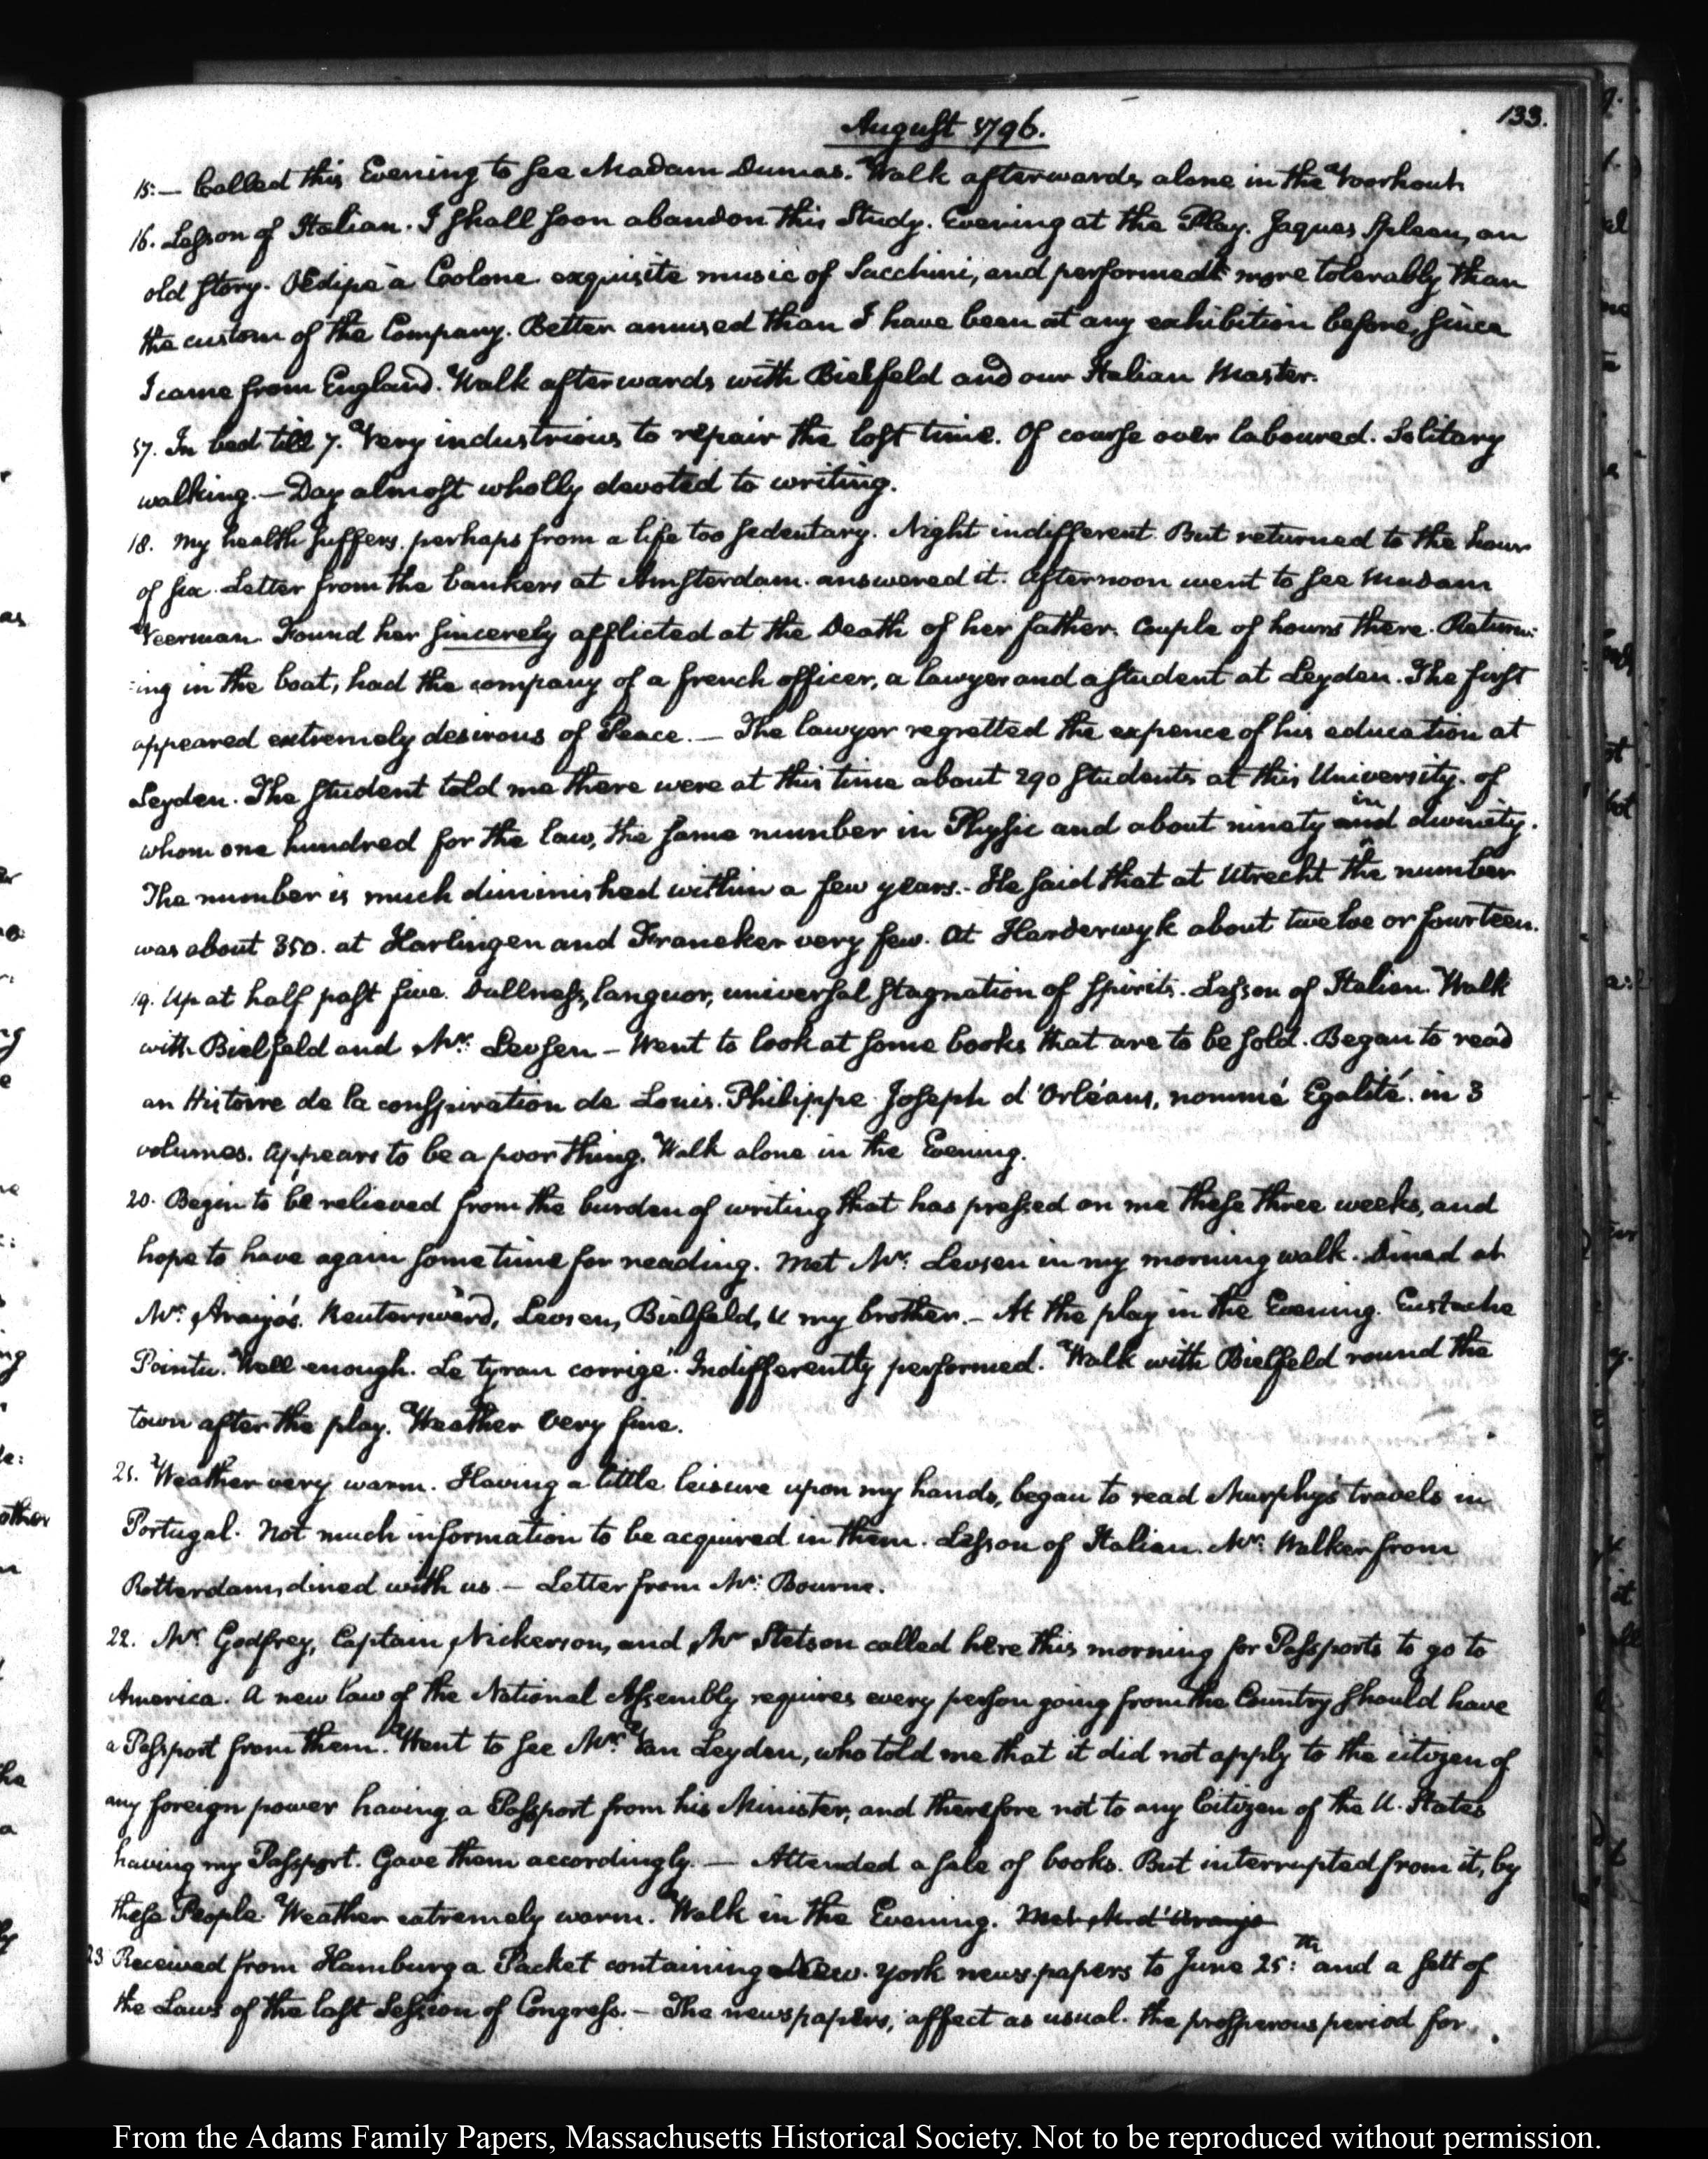 133.
August 1796.
15:— Called this Evening to see Madam Dumas. Walk afterwards alone in the Voorhout.
16. Lesson of Italian. I shall soon abandon this Study. Evening at the Play. Jaques Spleen, an
old story. Œdipe à Colone. exquisite music of Sacchini, and performed more tolerably than
the custom of the Company. Better amused than I have been at any exhibition before, since
I came from England. Walk afterwards with Bielfeld and our Italian Master.
17. In bed till 7. Very industrious to repair the lost time. Of course over laboured. Solitary
walking.— Day almost wholly devoted to writing.
18. My health suffers. perhaps from a life too sedentary. Night indifferent. But returned to the hour
of six. Letter from the bankers at Amsterdam. answered it. Afternoon went to see Madam
Veerman. Found her sincerely afflicted at the Death of her father. Couple of hours there. Return:
:ing in the boat, had the company of a french officer, a lawyer and a student at Leyden. The first
appeared extremely desirous of Peace.— The lawyer regretted the expence of his education at
Leyden. The student told me there were at this time about 290 students at this University. of
whom one hundred for the law, the same number in Physic and about ninety and in divinity.
The number is much diminished within a few years.- He said that at Utrecht the number
was about 350. at Harlingen and Franeker very few. At Harderwyk about twelve or fourteen.
19. Up at half past five. Dullness, languor, universal stagnation of spirits. Lesson of Italian. Walk
with Bielfeld and Mr: Levsen – Went to look at some books that are to be sold. Began to read
an Histoire de la conspiration de Louis. Philippe Joseph d'Orléans, nommé Egalité. in 3
volumes. Appears to be a poor thing. Walk alone in the Evening.
20. Begin to be relieved from the burden of writing that has pressed on me these three weeks, and
hope to have again some time for reading. Met Mr: Levsen in my morning walk. Dined at
Mr: Araujo's. Reuterswerd, Levsen, Bielfeld, & my brother.— At the play in the Evening. Eustache
Pointu. Well enough. Le tyran corrigé. Indifferently performed. Walk with Bielfeld round the
town after the play. Weather very fine.
21. Weather very warm. Having a little leisure upon my hands, began to read Murphy's travels in
Portugal. Not much information to be acquired in them. Lesson of Italian. Mr: Walker from
Rotterdam, dined with us.— Letter from Mr: Bourne.
22. Mr: Godfrey, Captain Nickerson, and Mr Stetson called here this morning for Passports to go to
America. A new law of the National Assembly requires every person going from the Country should have
a Passport from them. Went to see Mr: Van Leyden, who told me that it did not apply to the citizen of
any foreign power having a Passport from his Minister, and therefore not to any Citizen of the U. States
having my Passport. Gave them accordingly.— Attended a sale of books. But interrupted from it, by
these People. Weather extremely warm. Walk in the Evening. Met Mr. d'Araujo
23. Received from Hamburg a Packet containing New. York news.papers to June 25:th and a sett of
the Laws of the last Session of Congress.— The newspapers, affect as usual. the prosperous period for
From the Adams Family Papers, Massachusetts Historical Society. Not to be reproduced without permission.